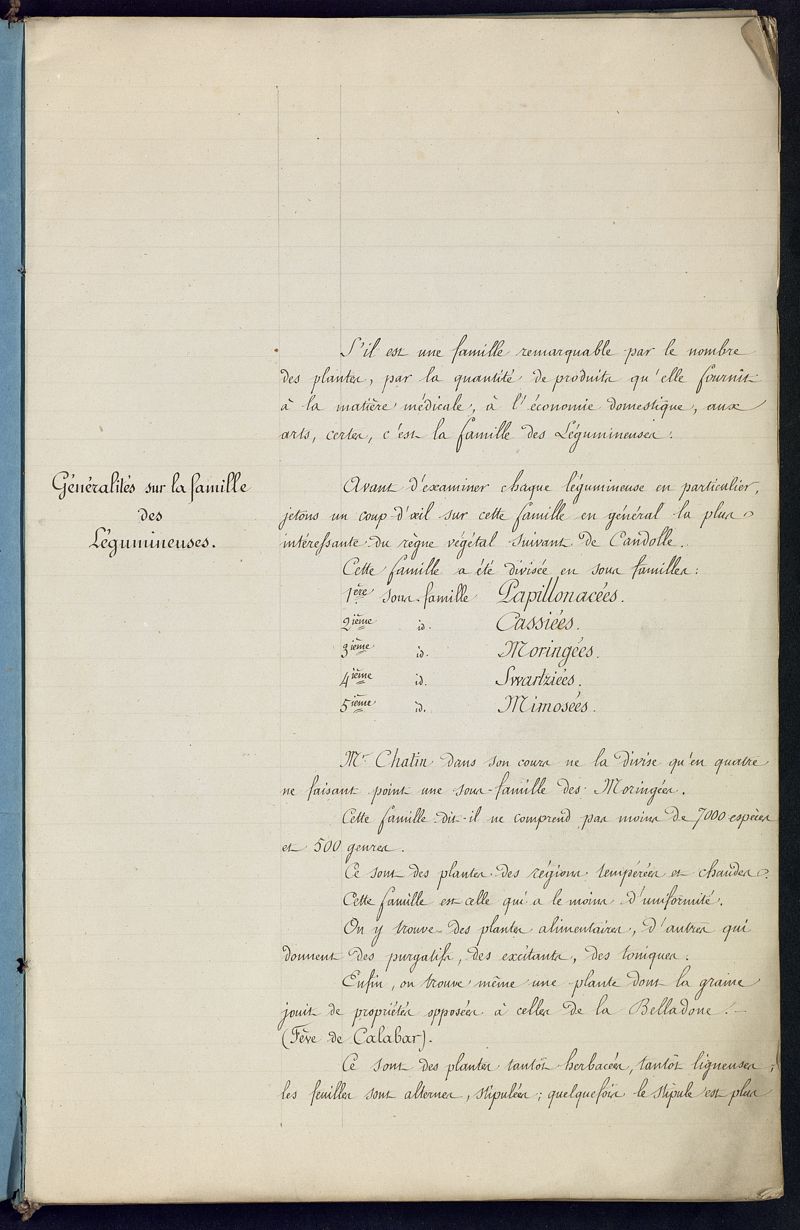 S'il est une famille remarquable par le nombre
des plantes, par la quantité de produits qu'elle fournit
à la matière médicale, à l'économie domestique, aux
arts, certes, c'est la famille des Légumineuses.
Généralités sur la famille
des
Légumineuses.
Avant d'examiner chaque légumineuse en particulier,
jetons un coup-d'œil sur cette famille en général la plus
intéressante du règne végétal suivant de Candolle.
Cette famille a été divisée en sous familles :
1ère sous-famille Papillonacées.
2ième id. Cassiées.
3ième id. Moringées.
4ième id. Swartziées.
5ième id. Mimosées.
Mr Chatin dans son cours ne la divise qu'en quatre
ne faisant point une sous-famille des Moringées.
Cette famille dit-il ne comprend pas moins de 7000 espèces
et 500 genres.
Ce sont des plantes des régions tempérées et chaudes.
Cette famille est celle qui a le moins d'uniformité.
On y trouve des plantes alimentaires, d'autres qui
donnent des purgatifs, des excitants, des toniques.
Enfin, on trouve même une plante dont la graine
jouit de propriétés opposées à celles de la Belladone. —
(Fève de Calabar).
Ce sont des plantes tantôt herbacées, tantôt ligneuses ;
les feuilles sont alternes, stipulées ; quelquefois le stipule est plus